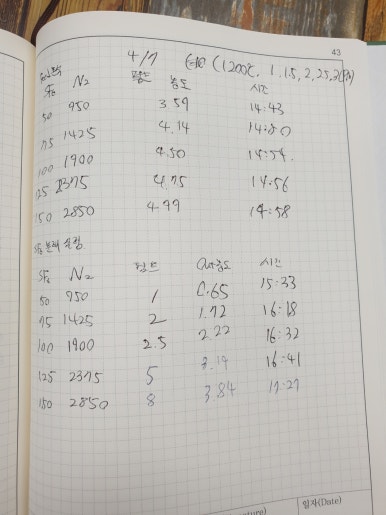 43
4/7 (1200℃, 1, 1.5, 2, 2.5, 3
SF6 N2 펌프 농도 시간
50 950 3.59 14:43
75 1425 4.14 14:50
100 1900 4.50 14:54.
125 2375 4.75 14:56
150 2850 4.99 14:58
SF6 분해 실험
SF6 N2 펌프 Out농도 시간
50 950 1 0.65 15:33
75 1425 2 1.72 16:18
100 1900 2.5 2.22 16:32
125 2375 5 3.19 16:41
150 2850 8 3.84 17:27
일자(Date)